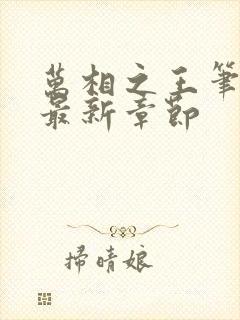 萬相之王筆
最新章節
掃晴娘